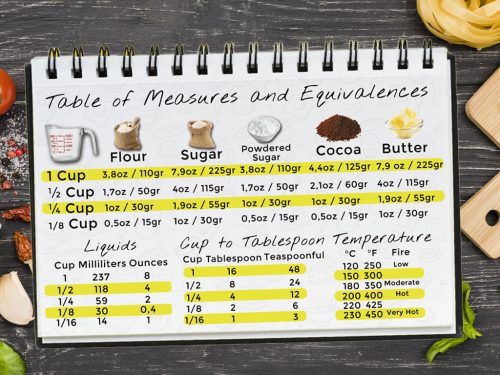 Table of Measures and Equivalences
Flour Sugar Powdered Sugar Cocoa Butter
1 Cup 3,8oz / 110gr 7,9oz / 225gr 3,8oz / 110gr 4,4oz / 125gr 7,9 oz / 225gr
1/2 Cup 1,7oz / 50gr 4oz / 115gr 1,7oz / 50gr 2,1oz / 60gr 4oz / 115gr
1/4 Cup 1oz / 30gr 1,9oz / 55gr 1oz / 30gr 1oz / 30gr 1,9oz / 55gr
1/8 Cup 0,5oz / 15gr 1oz / 30gr 0,5oz / 15gr 0,5oz / 15gr 1oz / 30gr
Liquids
Cup Milliliters Ounces
1 237 8
1/2 118 4
1/4 59 2
1/8 30 0,4
1/16 14 1
Cup to Tablespoon
Cup Tablespoon Teaspoonful
1 16 48
1/2 8 24
1/4 4 12
1/8 2 6
1/16 1 3
Temperature
°C °F Fire
120 250 Low
150 300
180 350 Moderate
200 400 Hot
220 425
230 450 Very Hot